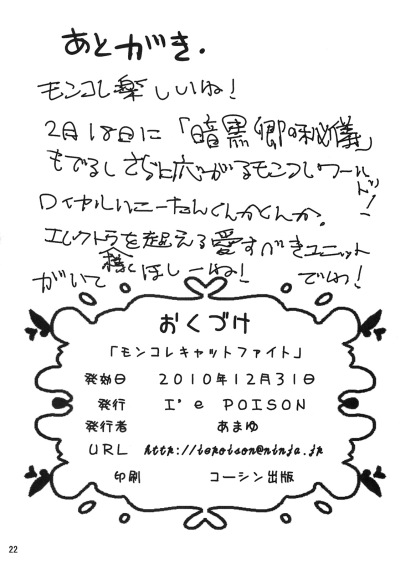 あとがき.
モンコレ楽しいね!
2月18日に「暗黒卿の秘儀」
もでるしさらに広がるモンコレワールドッ!
ロイヤルハニーたんくんかくんか.
エレクトラを超える愛すべきユニット
がいて ほしーね! でわ!
おくづけ
「モンコレキャットファイト」
発効日 2010年12月31日
発行 I'e POISON
発行者 あまゆ
URL http://iepoison@ninja.jp
印刷 コーシン出版
22